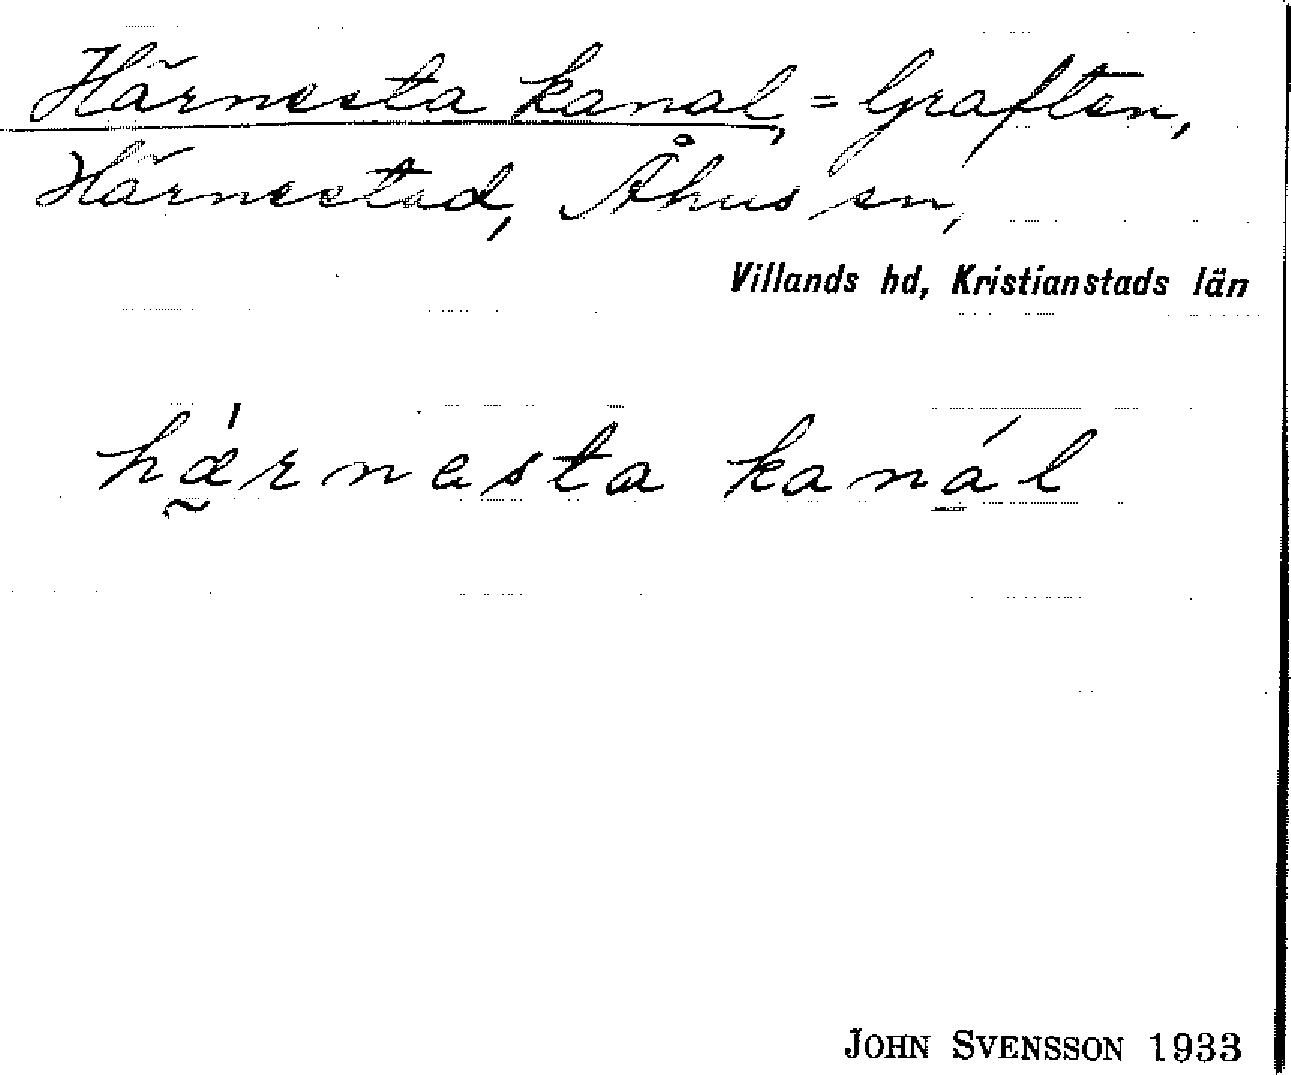 Härnesta kanal, = Graften,
Härnestad, Åhus sn,
Villands hd, Kristianstads län
hǽ̰rnesta kaná̱l
JOHN SVENSSON 1933